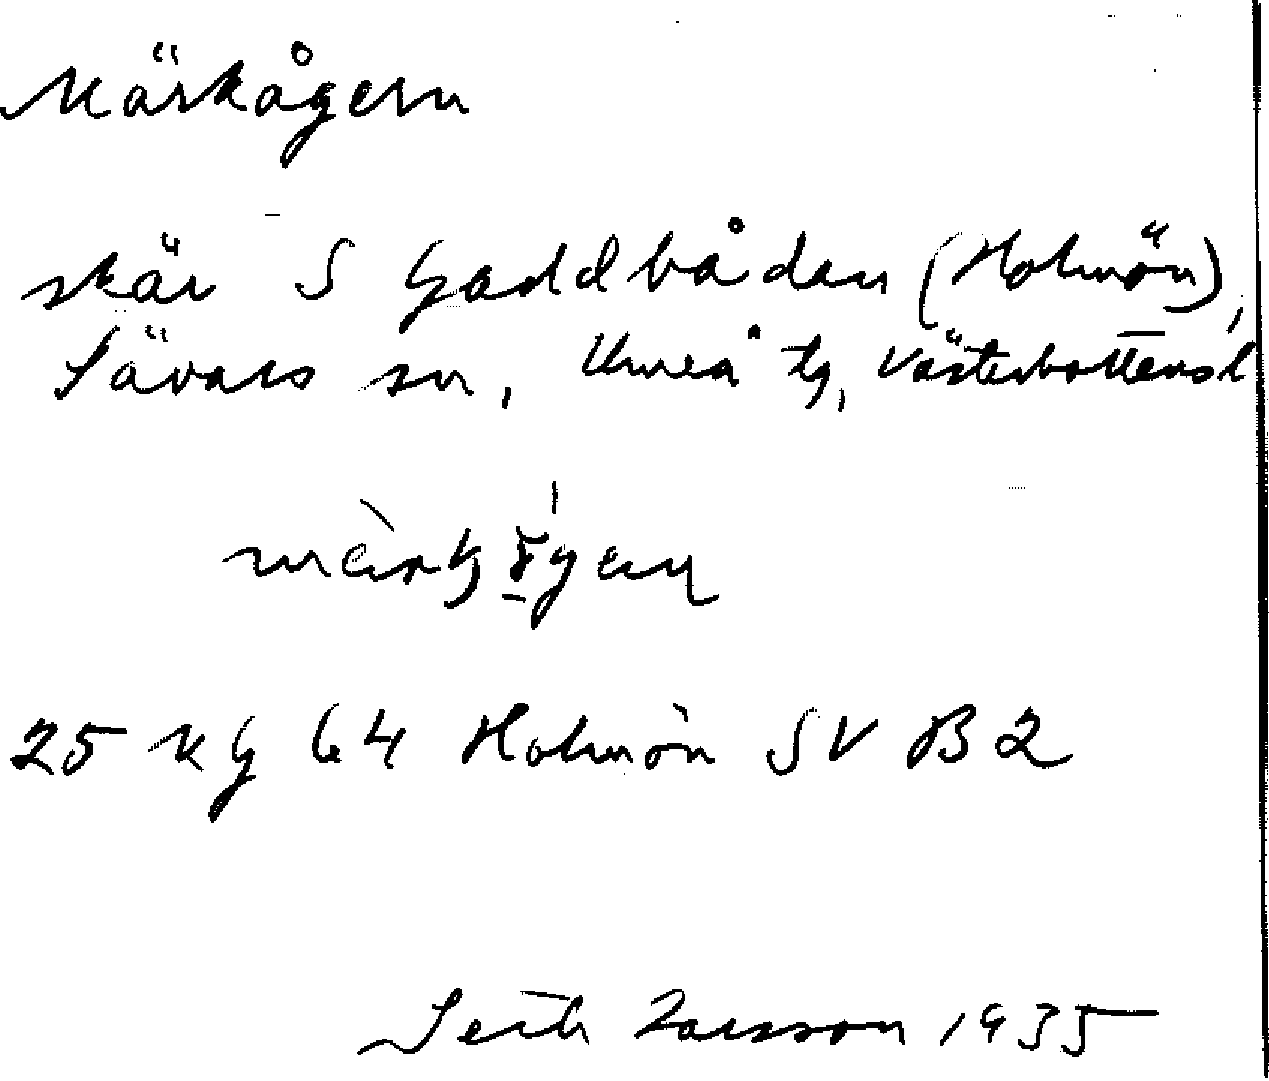 Märkågern
skär S Gaddbådan (Holmön),
Sävars sn, Umeå tg, Västerbottens l
25 kg 64 Holmön SV B2
Seth Larsson 1935